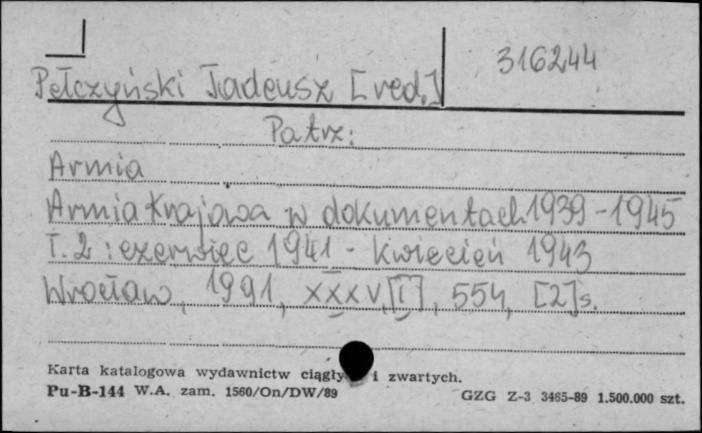 316244
Pełczyński Tadeusz [red.]
Patrz:
Armia
Armia Krajowa w dokumentach 1939-1945
T.2: czerwiec 1941 - kwiecień 1943
Wrocław, 1991, XXXV, [1], 554, [2]s.
Karta katalogowa wydawnictw ciągły i zwartych.
Pu-B-144 W.A. zam. 1560/On/DW/89
GZG Z-3 3465-89 1.500.000 szt.